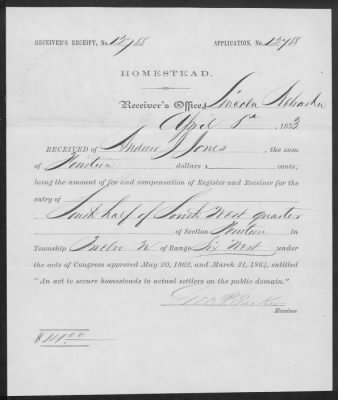 RECEIVER'S RECEIPT, No. 12788 APPLICATION, No. 12788
HOMESTEAD.
Receiver's Office, Lincoln Nebraska
April 5th, 1873
RECEIVED of Andrew J Jones, the sum
of dollars cents;
being the amount of fee and compensation of Register and Receiver for the
entry of
South half of South West quarter
of Section in
Township Twelve N of Range Six West under
the acts of Congress approved May 20, 1862, and March 21, 1864, entitled
"An act to secure homesteads to actual settlers on the public domain."
Receiver
$